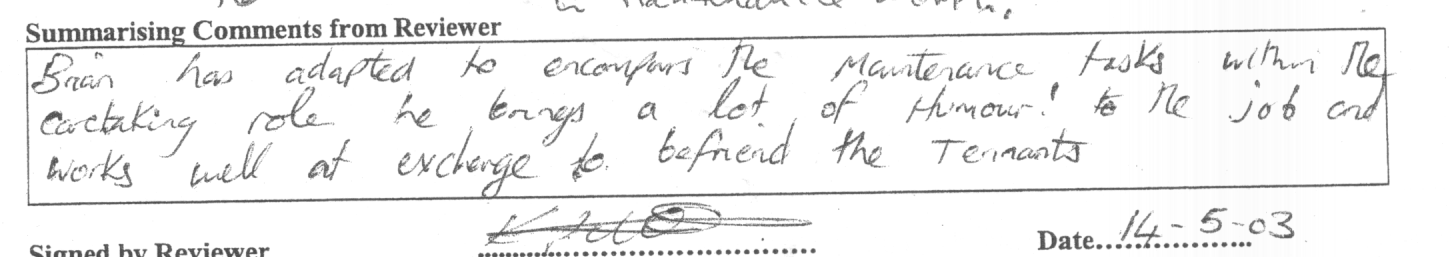 in Maintenance
Summarising Comments from Reviewer
Brian has adapted to encompass the Maintenance tasks within the
caretaking role he brings a lot of Humour! to the job and
works well at exchange to befriend the Tennants
Signed by Reviewer
Date...14-5-03